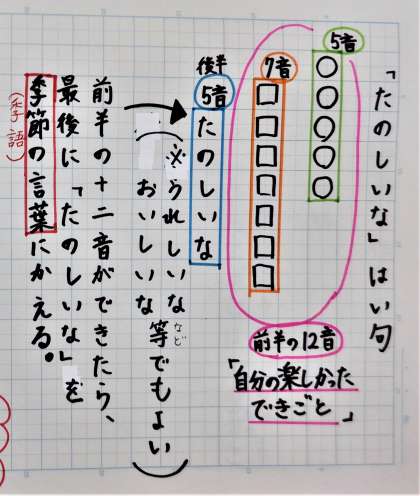 「たのしいな」はい句
5音
○○○○○
7音
□□□□□□□
前半の12音
「自分の楽しかった
できごと」
後半
5音
たのしいな
※うれしいな
おいしいな
等でもよい
など
前半の十二音ができたら、
最後に「たのしいな」を
季節の言葉にかえる。
(季語)